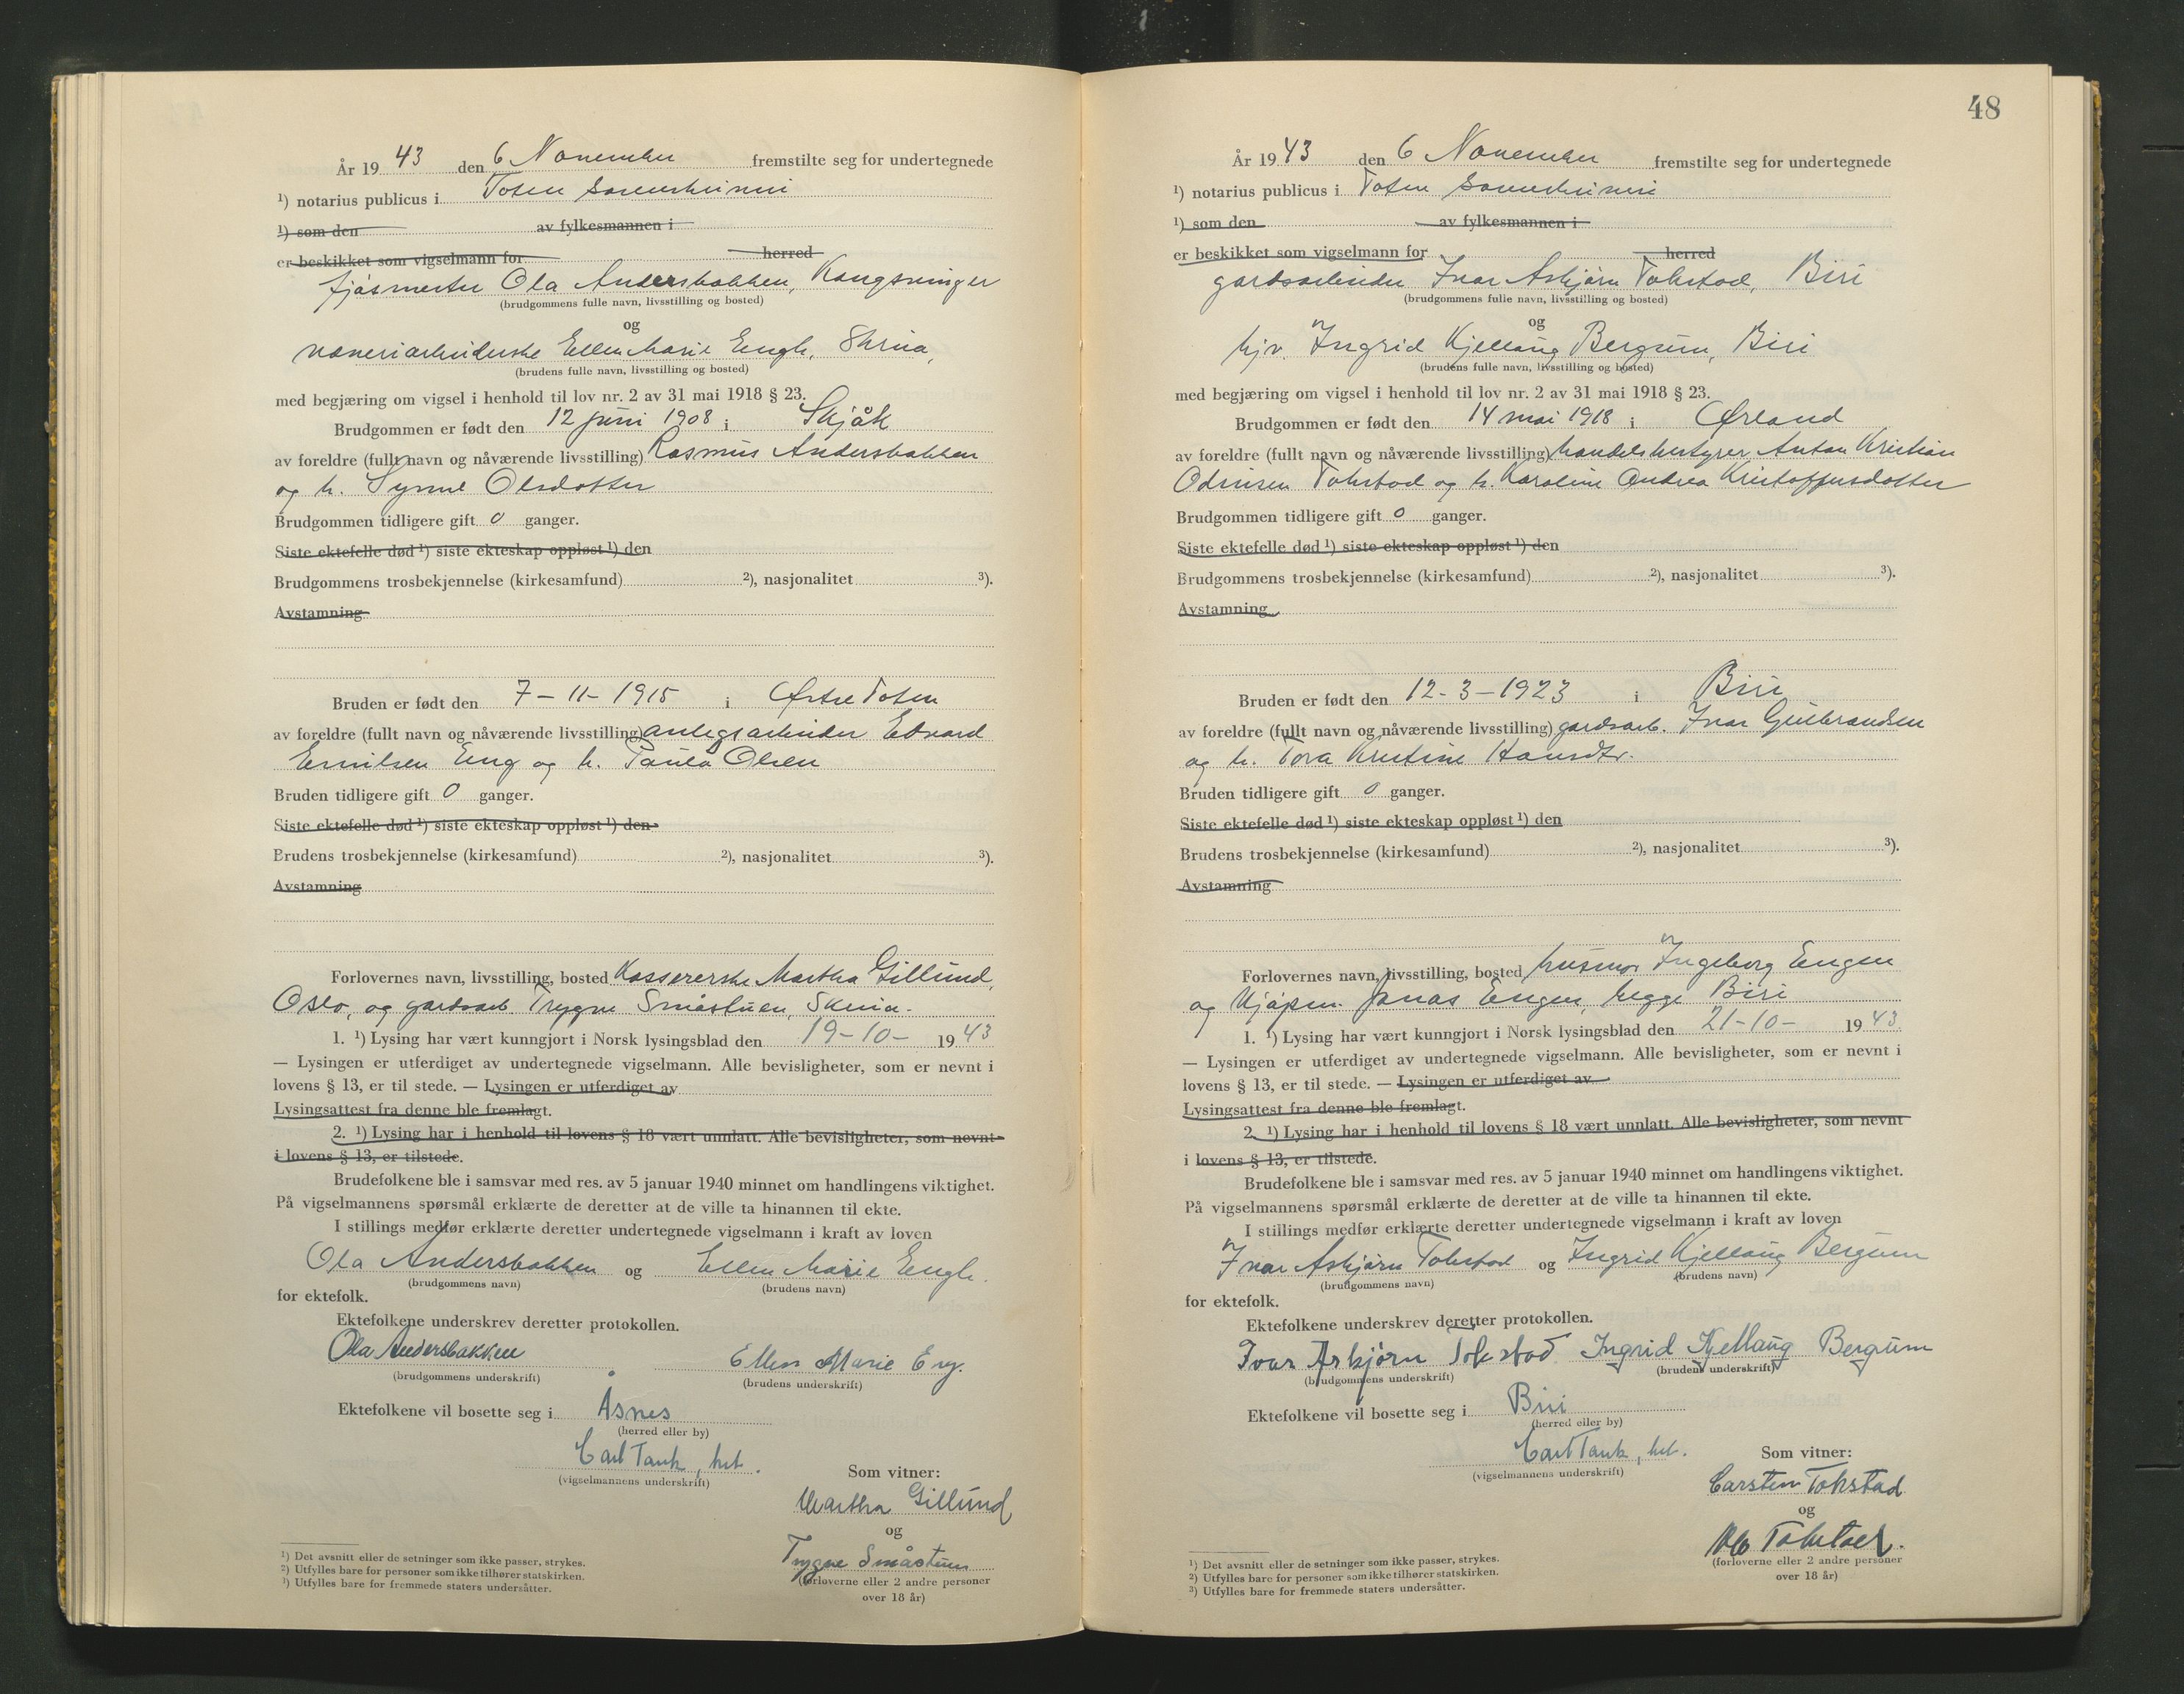 År 1943 den 6 November fremstilte seg for undertegnede
¹) notarius publicus i Toten sorenskriveri
¹) som den av fylkesmannen i
er beskikket som vigselmann for herred
fjøsmester Ola Andersbakken, Kongsvinger
(brudgommens fulle navn, livsstilling og bosted)
og
Ellen Marie Engh, Skreia,
(brudens fulle navn, livsstilling og bosted)
med begjæring om vigsel i henhold til lov nr. 2 av 31 mai 1918 § 23.
Brudgommen er født den 12 juni 1908 i Skjåk
av foreldre (fullt navn og nåværende livsstilling) Rasmus Andersbakken
og h. Synne Olsdotter
Brudgommen tidligere gift 0 ganger.
Siste ektefelle død ¹) siste ekteskap oppløst ¹) den
Brudgommens trosbekjennelse (kirkesamfund) ²), nasjonalitet ³).
Avstamning
Bruden er født den 7-11-1915 i Østre Toten
av foreldre (fullt navn og nåværende livsstilling) anlegsarbeider Edvard
Emilsen Eng og h. Paula Olsen
Bruden tidligere gift 0 ganger.
Siste ektefelle død ¹) siste ekteskap oppløst ¹) den
Brudens trosbekjennelse (kirkesamfund) ²), nasjonalitet ³).
Avstamning
Forlovernes navn, livsstilling, bosted Kassererske Martha Gillund,
Oslo, og gardsarb. Trygve Småstuen, Skreia.
1. ¹) Lysing har vært kunngjort i Norsk lysingsblad den 19-10- 1943
— Lysingen er utferdiget av undertegnede vigselmann. Alle bevisligheter, som er nevnt i
lovens § 13, er til stede. — Lysingen er utferdiget av
Lysingsattest fra denne ble fremlagt.
2. ¹) Lysing har i henhold til lovens § 18 vært unnlatt. Alle bevisligheter, som nevnt
i lovens § 13, er tilstede.
Brudefolkene ble i samsvar med res. av 5 januar 1940 minnet om handlingens viktighet.
På vigselmannens spørsmål erklærte de deretter at de ville ta hinannen til ekte.
I stillings medfør erklærte deretter undertegnede vigselmann i kraft av loven
Ola Andersbakken og Ellen Marie Engh.
(brudgommens navn) (brudens navn)
for ektefolk.
Ektefolkene underskrev deretter protokollen.
Ola Andersbakken Ellen Marie Eng.
(brudgommens underskrift) (brudens underskrift)
Ektefolkene vil bosette seg i Åsnes
(herred eller by)
Carl Tank, kst.
(vigselmannens underskrift)
Som vitner:
Martha Gillund
og
Trygve Småstuen
(forloverne eller 2 andre personer
over 18 år)
¹) Det avsnitt eller de setninger som ikke passer, strykes.
²) Utfylles bare for personer som ikke tilhører statskirken.
³) Utfylles bare for fremmede staters undersåtter.
48
År 1943 den 6 November fremstilte seg for undertegnede
¹) notarius publicus i Toten sorenskriveri
¹) som den av fylkesmannen i
er beskikket som vigselmann for herred
gardsarbeider Ivar Asbjørn Tokstad, Biri
(brudgommens fulle navn, livsstilling og bosted)
og
hjv. Ingrid Kjellaug Bergum, Biri
(brudens fulle navn, livsstilling og bosted)
med begjæring om vigsel i henhold til lov nr. 2 av 31 mai 1918 § 23.
Brudgommen er født den 14 mai 1918 i Ørland
av foreldre (fullt navn og nåværende livsstilling) handelsbestyrer Anton Kristian
Odinsen Tokstad og h. Karoline Andrea Kristoffersdotter
Brudgommen tidligere gift 0 ganger.
Siste ektefelle død ¹) siste ekteskap oppløst ¹) den
Brudgommens trosbekjennelse (kirkesamfund) ²), nasjonalitet ³).
Avstamning
Bruden er født den 12-3-1923 i Biri
av foreldre (fullt navn og nåværende livsstilling) gardsarb. Ivar Gulbrandsen
og h. Tora Kristine Hansdtr.
Bruden tidligere gift 0 ganger.
Siste ektefelle død ¹) siste ekteskap oppløst ¹) den
Brudens trosbekjennelse (kirkesamfund) ²), nasjonalitet ³).
Avstamning
Forlovernes navn, livsstilling, bosted husmor Ingeborg Engen
og kjøpm. Jonas Engen, begge Biri
1. ¹) Lysing har vært kunngjort i Norsk lysingsblad den 21-10- 1943
— Lysingen er utferdiget av undertegnede vigselmann. Alle bevisligheter, som er nevnt i
lovens § 13, er til stede. — Lysingen er utferdiget av
Lysingsattest fra denne ble fremlagt.
2. ¹) Lysing har i henhold til lovens § 18 vært unnlatt. Alle bevisligheter, som nevnt
i lovens § 13, er tilstede.
Brudefolkene ble i samsvar med res. av 5 januar 1940 minnet om handlingens viktighet.
På vigselmannens spørsmål erklærte de deretter at de ville ta hinannen til ekte.
I stillings medfør erklærte deretter undertegnede vigselmann i kraft av loven
Ivar Asbjørn Tokstad og Ingrid Kjellaug Bergum
(brudgommens navn) (brudens navn)
for ektefolk.
Ektefolkene underskrev deretter protokollen.
Ivar Asbjørn Tokstad Ingrid Kjellaug Bergum
(brudgommens underskrift) (brudens underskrift)
Ektefolkene vil bosette seg i Biri
(herred eller by)
Carl Tank, kst.
(vigselmannens underskrift)
Som vitner:
Carsten Tokstad
og
Tokstad.
(forloverne eller 2 andre personer
over 18 år)
¹) Det avsnitt eller de setninger som ikke passer, strykes.
²) Utfylles bare for personer som ikke tilhører statskirken.
³) Utfylles bare for fremmede staters undersåtter.